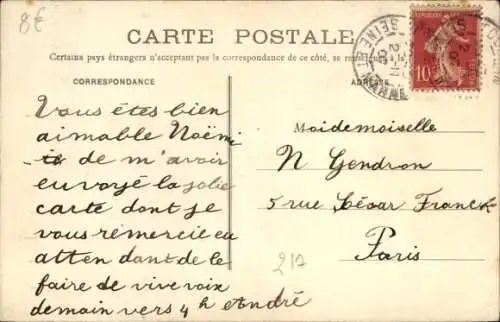 8€
CARTE POSTALE
Certains pays étrangers n'acceptant pas la correspondance de ce côté, se rense
CORRESPONDANCE
ADRESSE
SEINE ET MARNE
10
Vous êtes bien
aimable Noëmi
de m'avoir
envoyé la jolie
carte dont je
vous remercie en
attendant de le
faire de vive voix
demain vers 4 h André
Maidemoiselle
N Gendron
5 rue César Franck
Paris
217